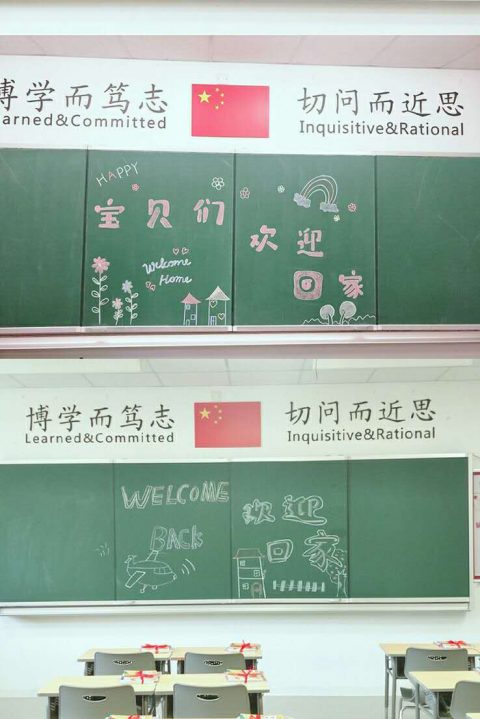 博学而笃志
arned&Committed
切问而近思
Inquisitive&Rational
HAPPY
宝贝们
欢迎
回家
Welcome
Home
博学而笃志
Learned&Committed
切问而近思
Inquisitive&Rational
WELCOME
BACK
欢迎
回家